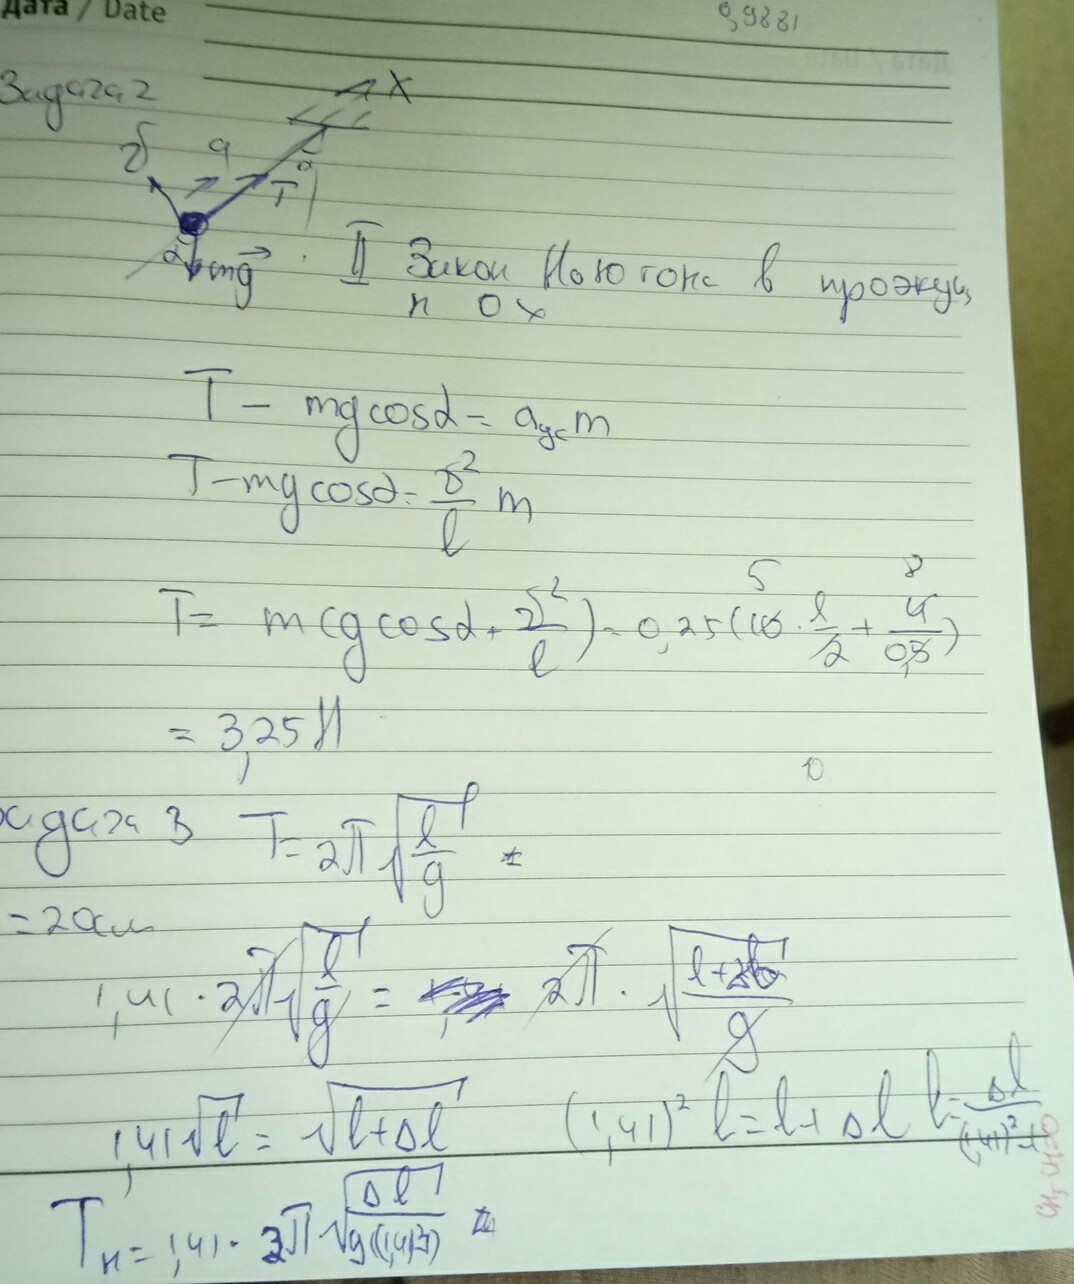 Дата / Date
0,9881
Задача 2
X
υ
a
α
T
α mg
II Закон Ньютона в проэкции
н ох
T - mg cosα = aцс m
T - mg cosα = υ²/l m
T = m(g cosα + υ²/l) = 0,25(10 · 1/2 + 4/0,5)
5 8
= 3,25 Н
Задача 3 T = 2π√(l/g) =
= 20см
1,41 · 2π√(l/g) = 2π · √((l+Δl)/g)
1,41√l = √(l+Δl) (1,41)² l = l + Δl l = Δl/((1,41)²-1)
Tн = 1,41 · 2π√